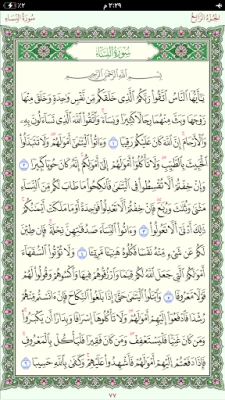 ٢:٢٩ م
٪٢
سُورَةُ النِّسَاءِ
الجُزْءُ الرَّابِعُ
سُورَةُ النِّسَاءِ
بِسْمِ اللَّهِ الرَّحْمَٰنِ الرَّحِيمِ
يَٰٓأَيُّهَا ٱلنَّاسُ ٱتَّقُوا۟ رَبَّكُمُ ٱلَّذِى خَلَقَكُم مِّن نَّفْسٍ وَٰحِدَةٍ وَخَلَقَ مِنْهَا
زَوْجَهَا وَبَثَّ مِنْهُمَا رِجَالًا كَثِيرًا وَنِسَآءً وَٱتَّقُوا۟ ٱللَّهَ ٱلَّذِى تَسَآءَلُونَ بِهِۦ
وَٱلْأَرْحَامَ إِنَّ ٱللَّهَ كَانَ عَلَيْكُمْ رَقِيبًا ١ وَءَاتُوا۟ ٱلْيَتَٰمَىٰٓ أَمْوَٰلَهُمْ وَلَا تَتَبَدَّلُوا۟
ٱلْخَبِيثَ بِٱلطَّيِّبِ وَلَا تَأْكُلُوٓا۟ أَمْوَٰلَهُمْ إِلَىٰٓ أَمْوَٰلِكُمْ إِنَّهُۥ كَانَ حُوبًا كَبِيرًا ٢
وَإِنْ خِفْتُمْ أَلَّا تُقْسِطُوا۟ فِى ٱلْيَتَٰمَىٰ فَٱنكِحُوا۟ مَا طَابَ لَكُم مِّنَ ٱلنِّسَآءِ
مَثْنَىٰ وَثُلَٰثَ وَرُبَٰعَ فَإِنْ خِفْتُمْ أَلَّا تَعْدِلُوا۟ فَوَٰحِدَةً أَوْ مَا مَلَكَتْ أَيْمَٰنُكُمْ
ذَٰلِكَ أَدْنَىٰٓ أَلَّا تَعُولُوا۟ ٣ وَءَاتُوا۟ ٱلنِّسَآءَ صَدُقَٰتِهِنَّ نِحْلَةً فَإِن طِبْنَ
لَكُمْ عَن شَىْءٍ مِّنْهُ نَفْسًا فَكُلُوهُ هَنِيٓـًٔا مَّرِيٓـًٔا ٤ وَلَا تُؤْتُوا۟ ٱلسُّفَهَآءَ
أَمْوَٰلَكُمُ ٱلَّتِى جَعَلَ ٱللَّهُ لَكُمْ قِيَٰمًا وَٱرْزُقُوهُمْ فِيهَا وَٱكْسُوهُمْ وَقُولُوا۟ لَهُمْ
قَوْلًا مَّعْرُوفًا ٥ وَٱبْتَلُوا۟ ٱلْيَتَٰمَىٰ حَتَّىٰٓ إِذَا بَلَغُوا۟ ٱلنِّكَاحَ فَإِنْ ءَانَسْتُم مِّنْهُمْ
رُشْدًا فَٱدْفَعُوٓا۟ إِلَيْهِمْ أَمْوَٰلَهُمْ وَلَا تَأْكُلُوهَآ إِسْرَافًا وَبِدَارًا أَن يَكْبَرُوا۟
وَمَن كَانَ غَنِيًّا فَلْيَسْتَعْفِفْ وَمَن كَانَ فَقِيرًا فَلْيَأْكُلْ بِٱلْمَعْرُوفِ
فَإِذَا دَفَعْتُمْ إِلَيْهِمْ أَمْوَٰلَهُمْ فَأَشْهِدُوا۟ عَلَيْهِمْ وَكَفَىٰ بِٱللَّهِ حَسِيبًا ٦
٧٧